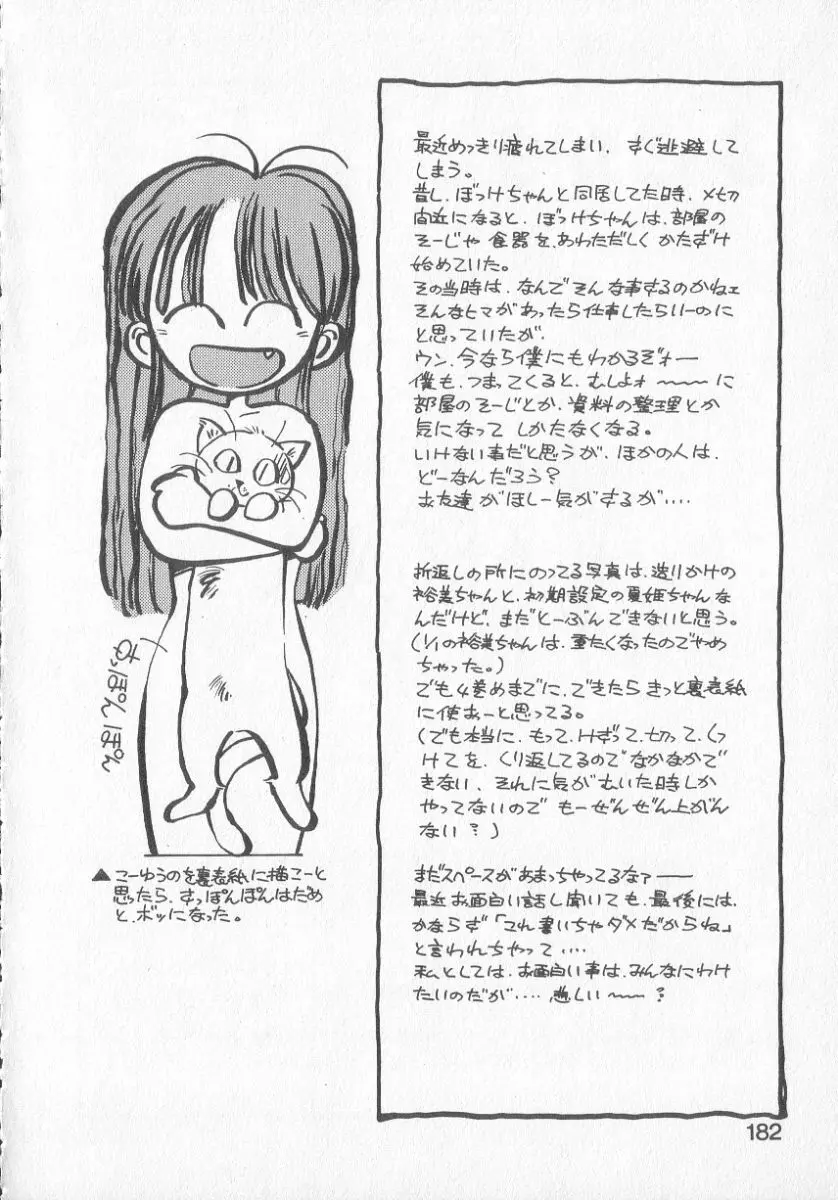 最近めっきり疲れてしまい、すぐ逃避して
しまう。
昔し、ぼっけちゃんと同居してた時、〆切
間近になると、ぼっけちゃんは、部屋の
そーじや 食器を、あわただしく かたずけ
始めていた。
その当時は、なんでそんな事するのかねェ
そんなヒマがあったら仕事したらいーのに
と思っていたが、
ウン、今なら僕にもわかるぞォー
僕も、つまってくると、むしょォ〜〜〜に
部屋のそーじとか、資料の整理とか
気になって しかたなくなる。
いけない事だと思うが、ほかの人は、
どーなんだろう?
お友達がほしー気がするが‥‥
折返しの所にのってる写真は、造りかけの
裕美ちゃんと、初期設定の夏姫ちゃんな
んだけど、まだとーぶんできないと思う。
(1/1の裕美ちゃんは、重たくなったのでやめ
ちゃった。)
でも4巻めまでに、できたら きっと裏表紙
に使おーと思ってる。
(でも本当に、もって、けずって、切って、くっ
けてを、くり返してるので なかなかで
きない、それに気がむいた時しか
やってないので もーぜんぜん上がん
ない?)
まだスペースがあまっちゃってるなァー
最近お面白い話し聞いても、最後には、
かならず「これ書いちゃダメだからね」
と言われちゃって‥‥
私としては、お面白い事は、みんなにわけ
たいのだが‥‥悲しい〜〜?
すっぽんぽん
▲こーゆうのを裏表紙に描こーと
思ったら、すっぽんぽんはだめ
と、ボツになった。
182